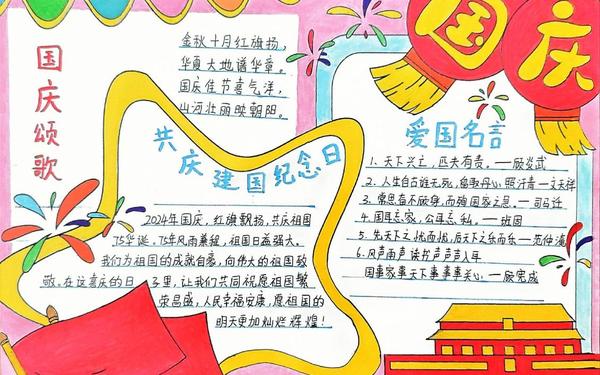 国庆颂歌
金秋十月红旗扬，
华夏大地谱华章。
国庆佳节喜气洋，
山河壮丽映朝阳。
国庆
共庆建国纪念日
2024年国庆，红旗飘扬，共庆祖国
75华诞，75年风雨兼程，祖国日益强大。
我们为祖国的成就自豪，向伟大的祖国致
敬。在这喜庆的日子里，让我们共同祝愿祖国繁
荣昌盛，人民幸福安康，愿祖国的
明天更加灿烂辉煌！
爱国名言
1. 天下兴亡，匹夫有责。—顾炎武
2. 人生自古谁无死，留取丹心照汗青—文天祥
3. 常思奋不顾身，而殉国家之急。—司马迁
4. 国耳忘家，公耳忘私。—班固
5. 先天下之忧而忧，后天下之乐而乐—范仲淹
6. 风声雨声读书声声声入耳
国事家事天下事事事关心。—顾完成